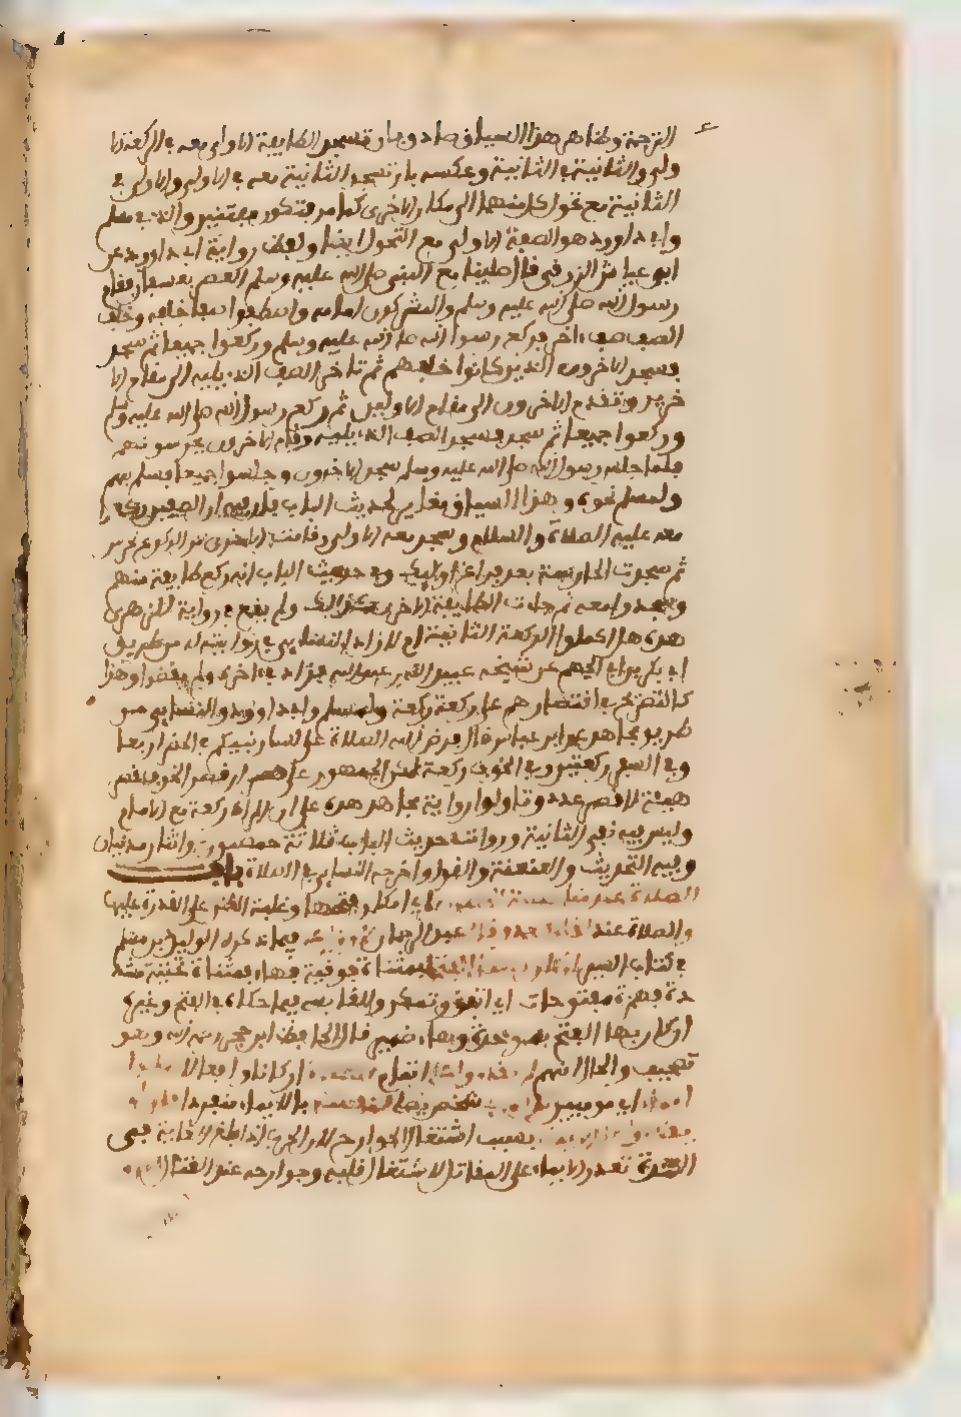 الترجمة وظاهر هذا السياق صادق بان تسجد الطايفة الاولى معه في الركعة الا
ولى والثانية في الثانية وعكسه بان تسجد الثانية معه في الاولى والاولى في
الثانية مع تحول كل منهما الى مكان الاخرى كما مر فتكون صفتين والذي في مسلم
وابي داوود هو الصفة الاولى مع التحول ايضا ولفظ رواية ابي داوود عن
ابي عياش الزرقي قال صلينا مع النبي صلى الله عليه وسلم العصر بعسفان فقام
رسول الله صلى الله عليه وسلم والمشركون امامه واصطفوا صفا خلفه وخلف
الصف صف اخر فركع رسول الله صلى الله عليه وسلم وركعوا جميعا ثم سجد
فسجد الاخرون الذين كانوا خلفهم ثم تاخر الصف الذي يليه الى مقام الا
خرين وتقدم الاخرون الى مقام الاولين ثم ركع رسول الله صلى الله عليه وسلم
وركعوا جميعا ثم سجد فسجد الصف الذي يليه وقام الاخرون يحرسونهم
فلما جلس رسول الله صلى الله عليه وسلم سجد الاخرون وجلسوا جميعا فسلم بهم
ولمسلم نحوه وهذا السياق مغاير لحديث الباب فان فيه ان الصفين ركعوا
معه عليه الصلاة والسلام وسجد معه الاولى وقامت الاخرى من الركوع تحرس
ثم سجدت الحارسة بعد فراغ اوليك وفي حديث الباب انه ركع طايفة منهم
وسجدوا معه ثم جات الطايفة الاخرى كذلك ولم يقع في رواية الزهري
هذه هل اكملوا الركعة الثانية ام لا زاد النساءي في روايته له من طريق
ابي بكر بن ابي الجهم عن شيخه عبيد الله بن عبد الله فزاد في اخره ولم يقضوا وهذا
كالنص في اقتصارهم على ركعة ركعة ولمسلم وابي داوود والنساءي من
طريق مجاهد عن ابن عباس قال فرض الله الصلاة على لسان نبيكم في الحضر اربعا
وفي السفر ركعتين وفي الخوف ركعة لكن الجمهور على ان قصر الخوف قصر
هيئة لا قصر عدد وتاولوا رواية مجاهد هذه على ان المراد ركعة مع الامام
وليس فيه نفي الثانية ورواة حديث الباب ثلاثة حمصيون واثنان مدنيان
وفيه التحديث والعنعنة والقول واخرجه النساءي في الصلاة باب
الصلاة عند مناهضة الحصون اي امكان فتحها وغلبة الظن على القدرة عليها
والصلاة عند لقاء العدو وقال عبد الرحمان الاوزاعي فيما ذكره الوليد بن مسلم
في كتاب السير ان كان تهيأ الفتح بمثناة فوقية فهاء فمثناة تحتية مشد
دة فهمزة مفتوحات اي اتفق وتمكن وللقابسي فيما حكاه في الفتح وغيره
ان كان بها الفتح بموحدة وهاء ضمير قال الحافظ ابن حجر رحمه الله وهو
تصحيف والحال انهم لم يقدروا على اتمام الصلاة اركانا وافعالا صلوا
ايماء اي مومين كل امرئ شخص يصلي لنفسه بالايماء منفردا فان لم
يقدروا على الايماء بسبب اشتغال الجوارح لان الحرب اذا بلغ الغاية في
الشدة تعذر الايماء على المقاتل لاشتغال قلبه وجوارحه عند القتال